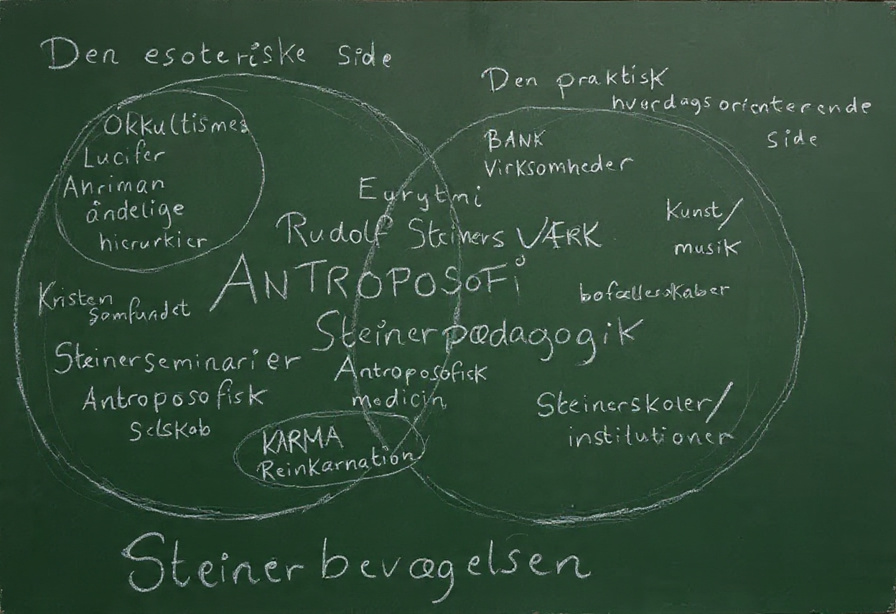 Den esoteriske side
Den praktisk
hverdagsorienterende
side
Okkultismes
Lucifer
Ahriman
åndelige
hierarkier
BANK
Virksomheder
Eurytmi
Kunst/
musik
Rudolf Steiners VÆRK
ANTROPOSOFi
bofællesskaber
Kristen
Samfundet
Steinerpædagogik
Steinerseminarier
Antroposofisk
medicin
Antroposofisk
Selskab
Steinerskoler/
institutioner
KARMA
Reinkarnation
Steinerbevægelsen